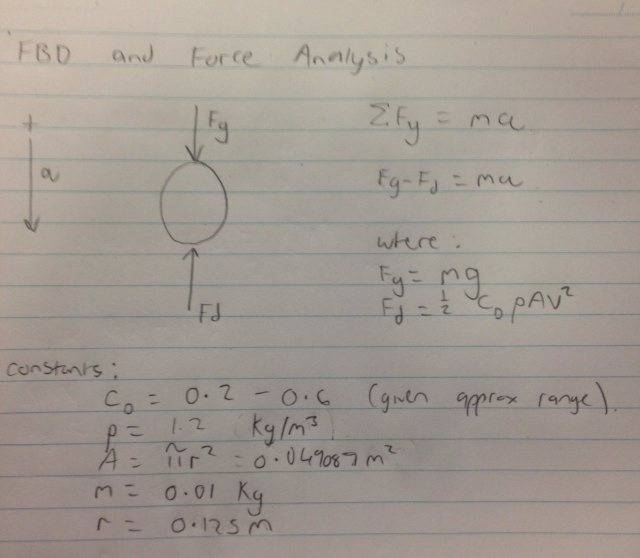 FBD and Force Analysis
+
a
Fg
Fd
ΣFy = ma
Fg-Fd = ma
where:
Fg = mg
Fd = 1/2 CD ρAV²
constants:
CD = 0.2 - 0.6 (given approx range).
ρ = 1.2 Kg/m³
A = πr² = 0.049087 m²
m = 0.01 Kg
r = 0.125m